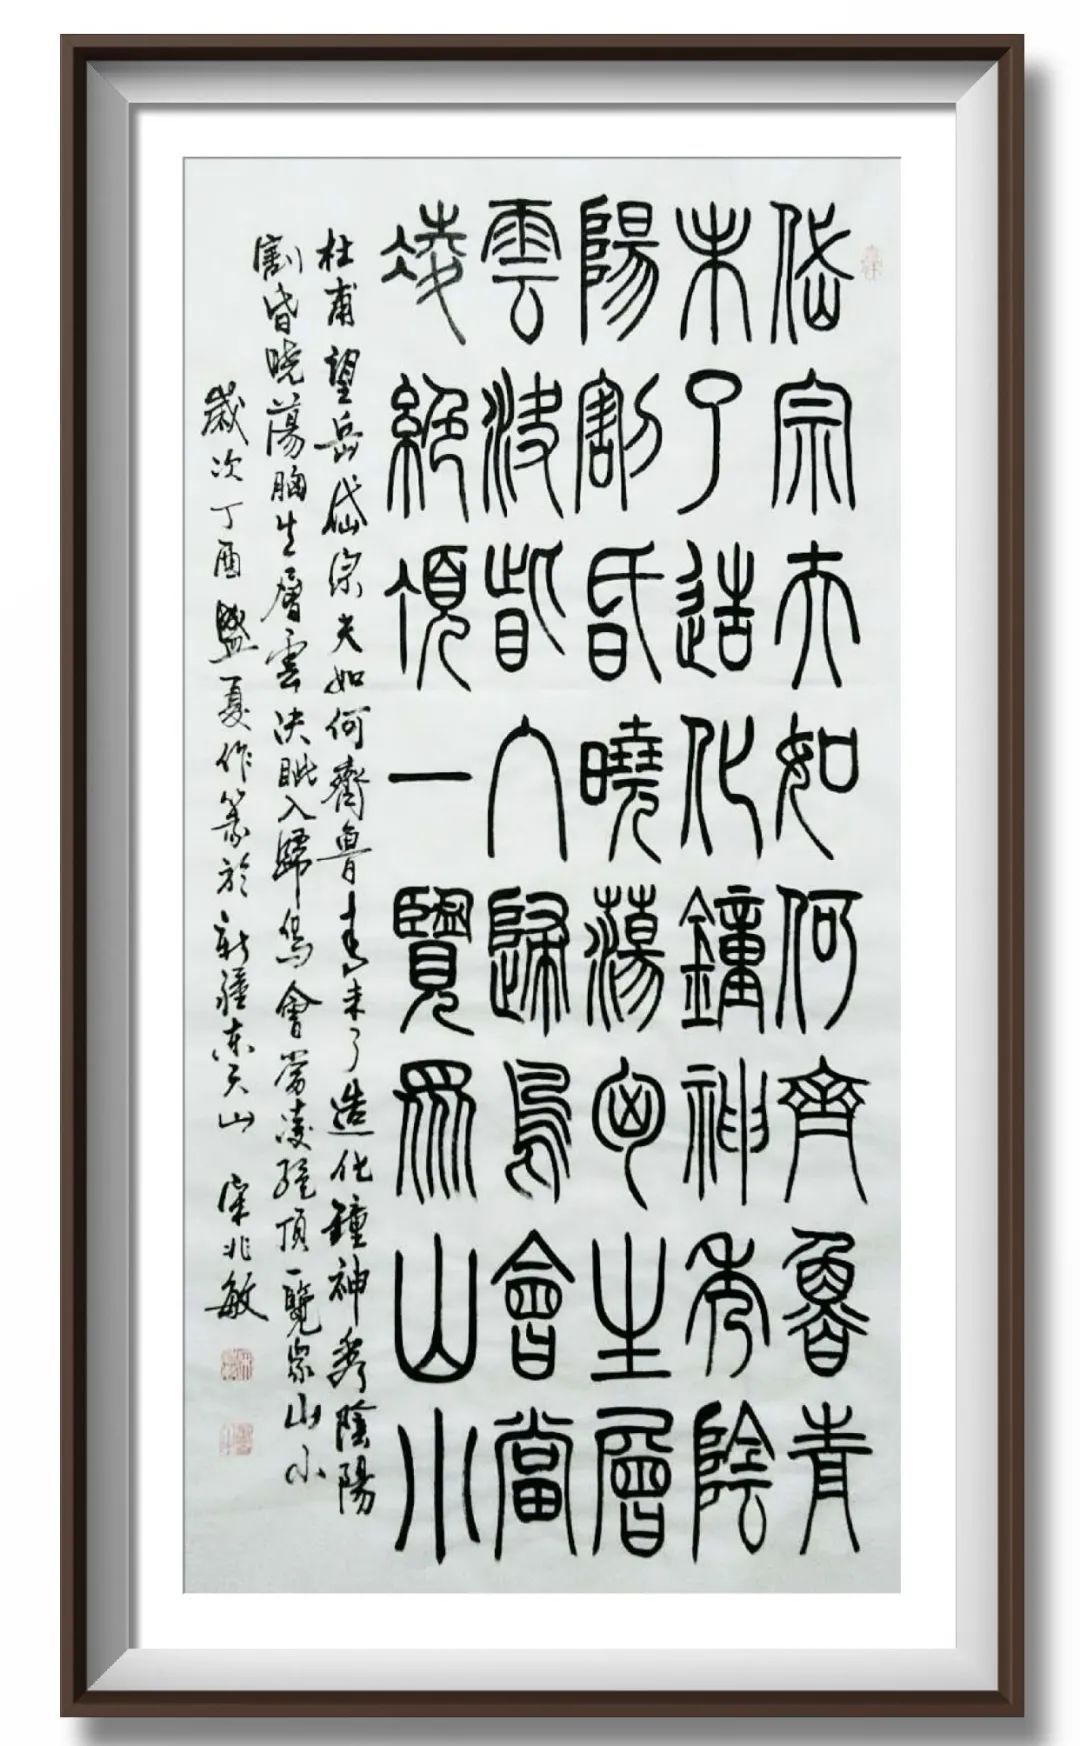 岱宗夫如何齊魯青
未了造化鐘神秀陰
陽割昏曉蕩胷生層
雲決眥入歸鳥會當
凌絕頂一覽眾山小
杜甫望岳岱宗夫如何齊魯青未了造化鐘神秀陰陽
割昏曉蕩胸生層雲決眦入歸鳥會當凌絕頂一覽眾山小
歲次丁酉盛夏作篆於新疆東天山 宋兆敏